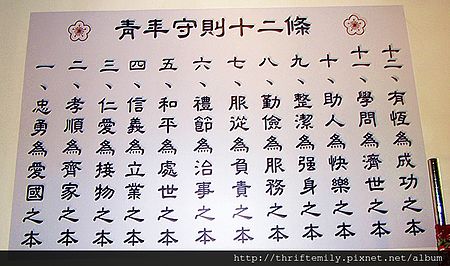 青年守則十二條
一、忠勇為愛國之本
二、孝順為齊家之本
三、仁愛為接物之本
四、信義為立業之本
五、和平為處世之本
六、禮節為治事之本
七、服從為負責之本
八、勤儉為服務之本
九、整潔為强身之本
十、助人為快樂之本
十一、學問為濟世之本
十二、有恆為成功之本
http://thriftemily.pixnet.net/album